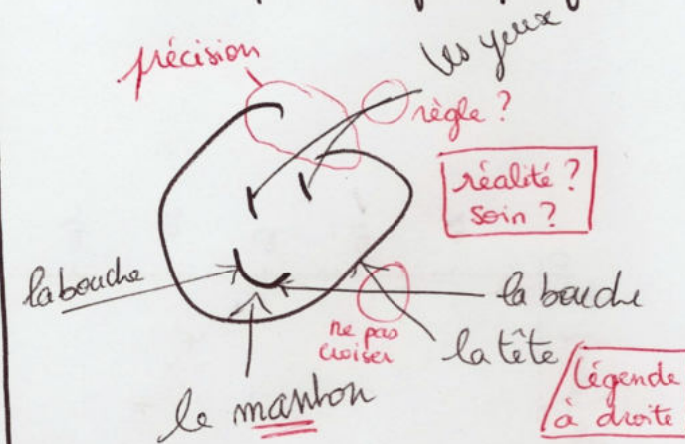 précision
les yeux
règle ?
réalité ?
soin ?
la bouche
la bouche
ne pas
croiser
la tête
le manton
légende
à droite